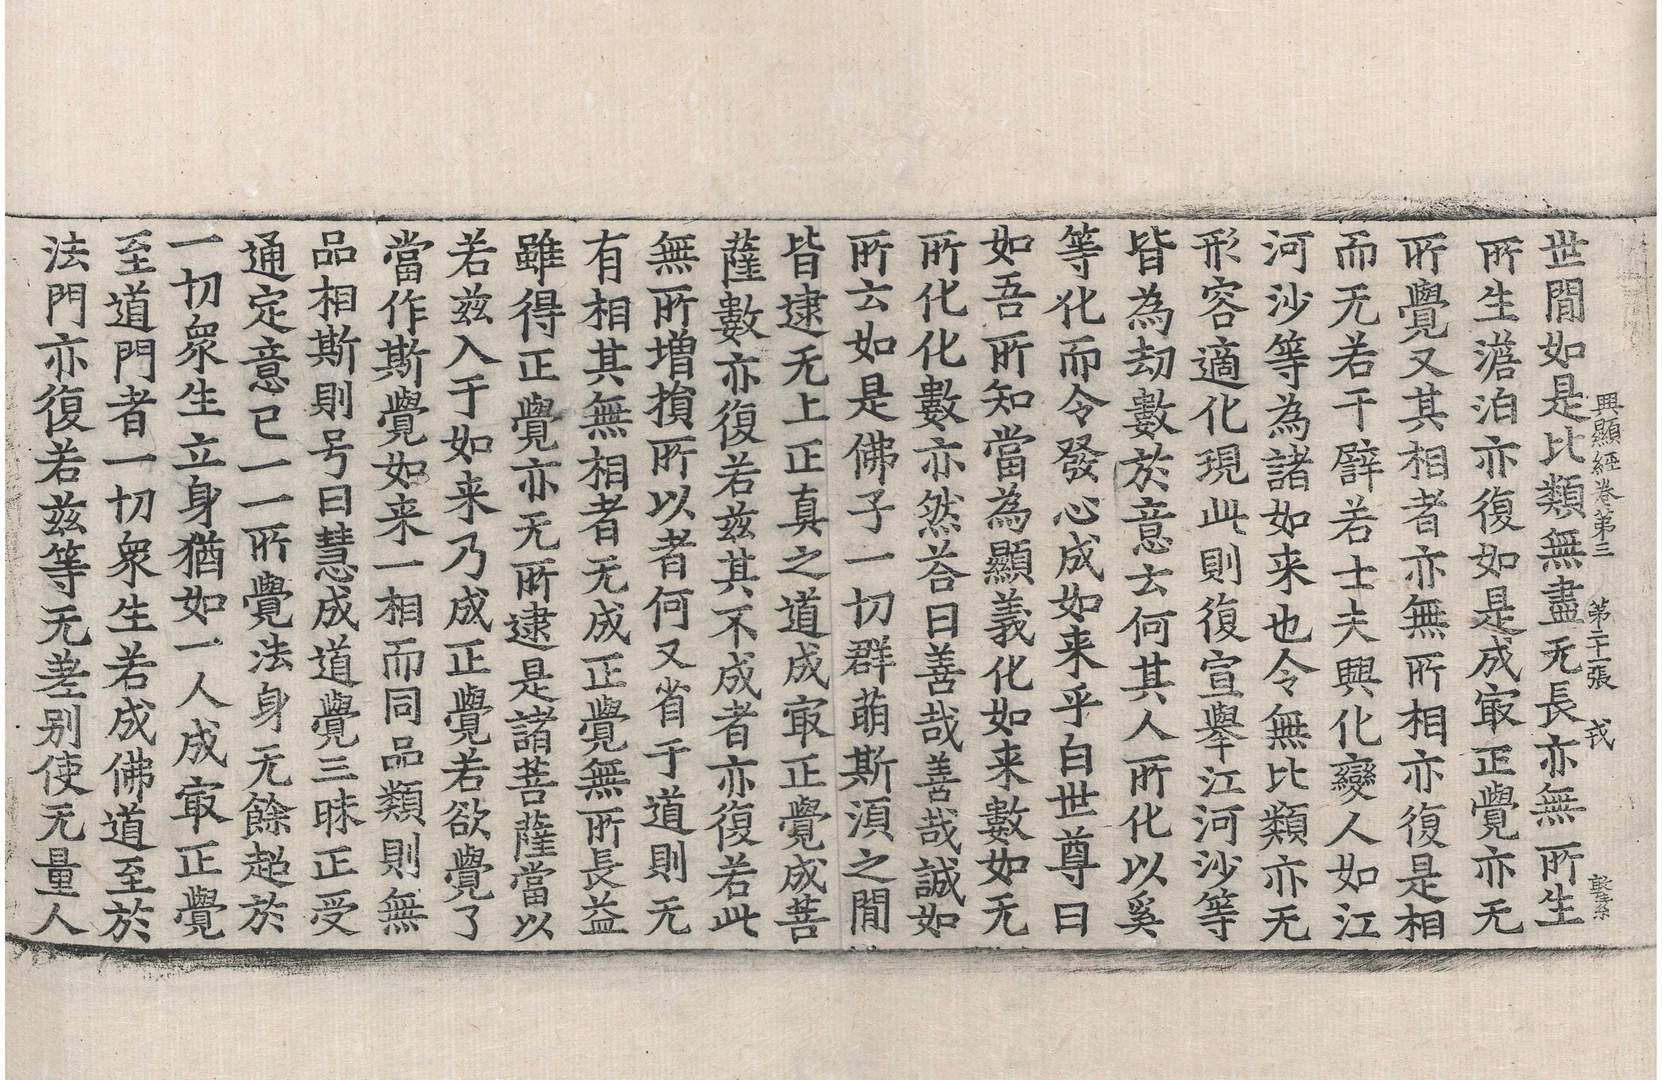 興顯經卷第三 第二十一張 戎
世間如是比類無盡无長亦無所生
所生澹泊亦復如是成㝡正覺亦无
所覺又其相者亦無所相亦復是相
而无若干譬若士夫興化變人如江
河沙等為諸如来也令無比類亦无
形容適化現此則復宣舉江河沙等
皆為劫數於意云何其人所化以奚
等化而令發心成如来乎白世尊曰
如吾所知當為顯義化如来數如无
所化化數亦然荅曰善哉善哉誠如
所云如是佛子一切群萌斯須之間
皆逮无上正真之道成㝡正覺成菩
薩數亦復若茲其不成者亦復若此
無所增損所以者何又省于道則无
有相其無相者无成正覺無所長益
雖得正覺亦无所逮是諸菩薩當以
若茲入于如来乃成正覺若欲覺了
當作斯覺如来一相而同品類則無
品相斯則号曰慧成道覺三昧正受
通定意已一一所覺法身无餘超於
一切眾生立身猶如一人成㝡正覺
至道門者一切眾生若成佛道至於
法門亦復若茲等无差别使无量人